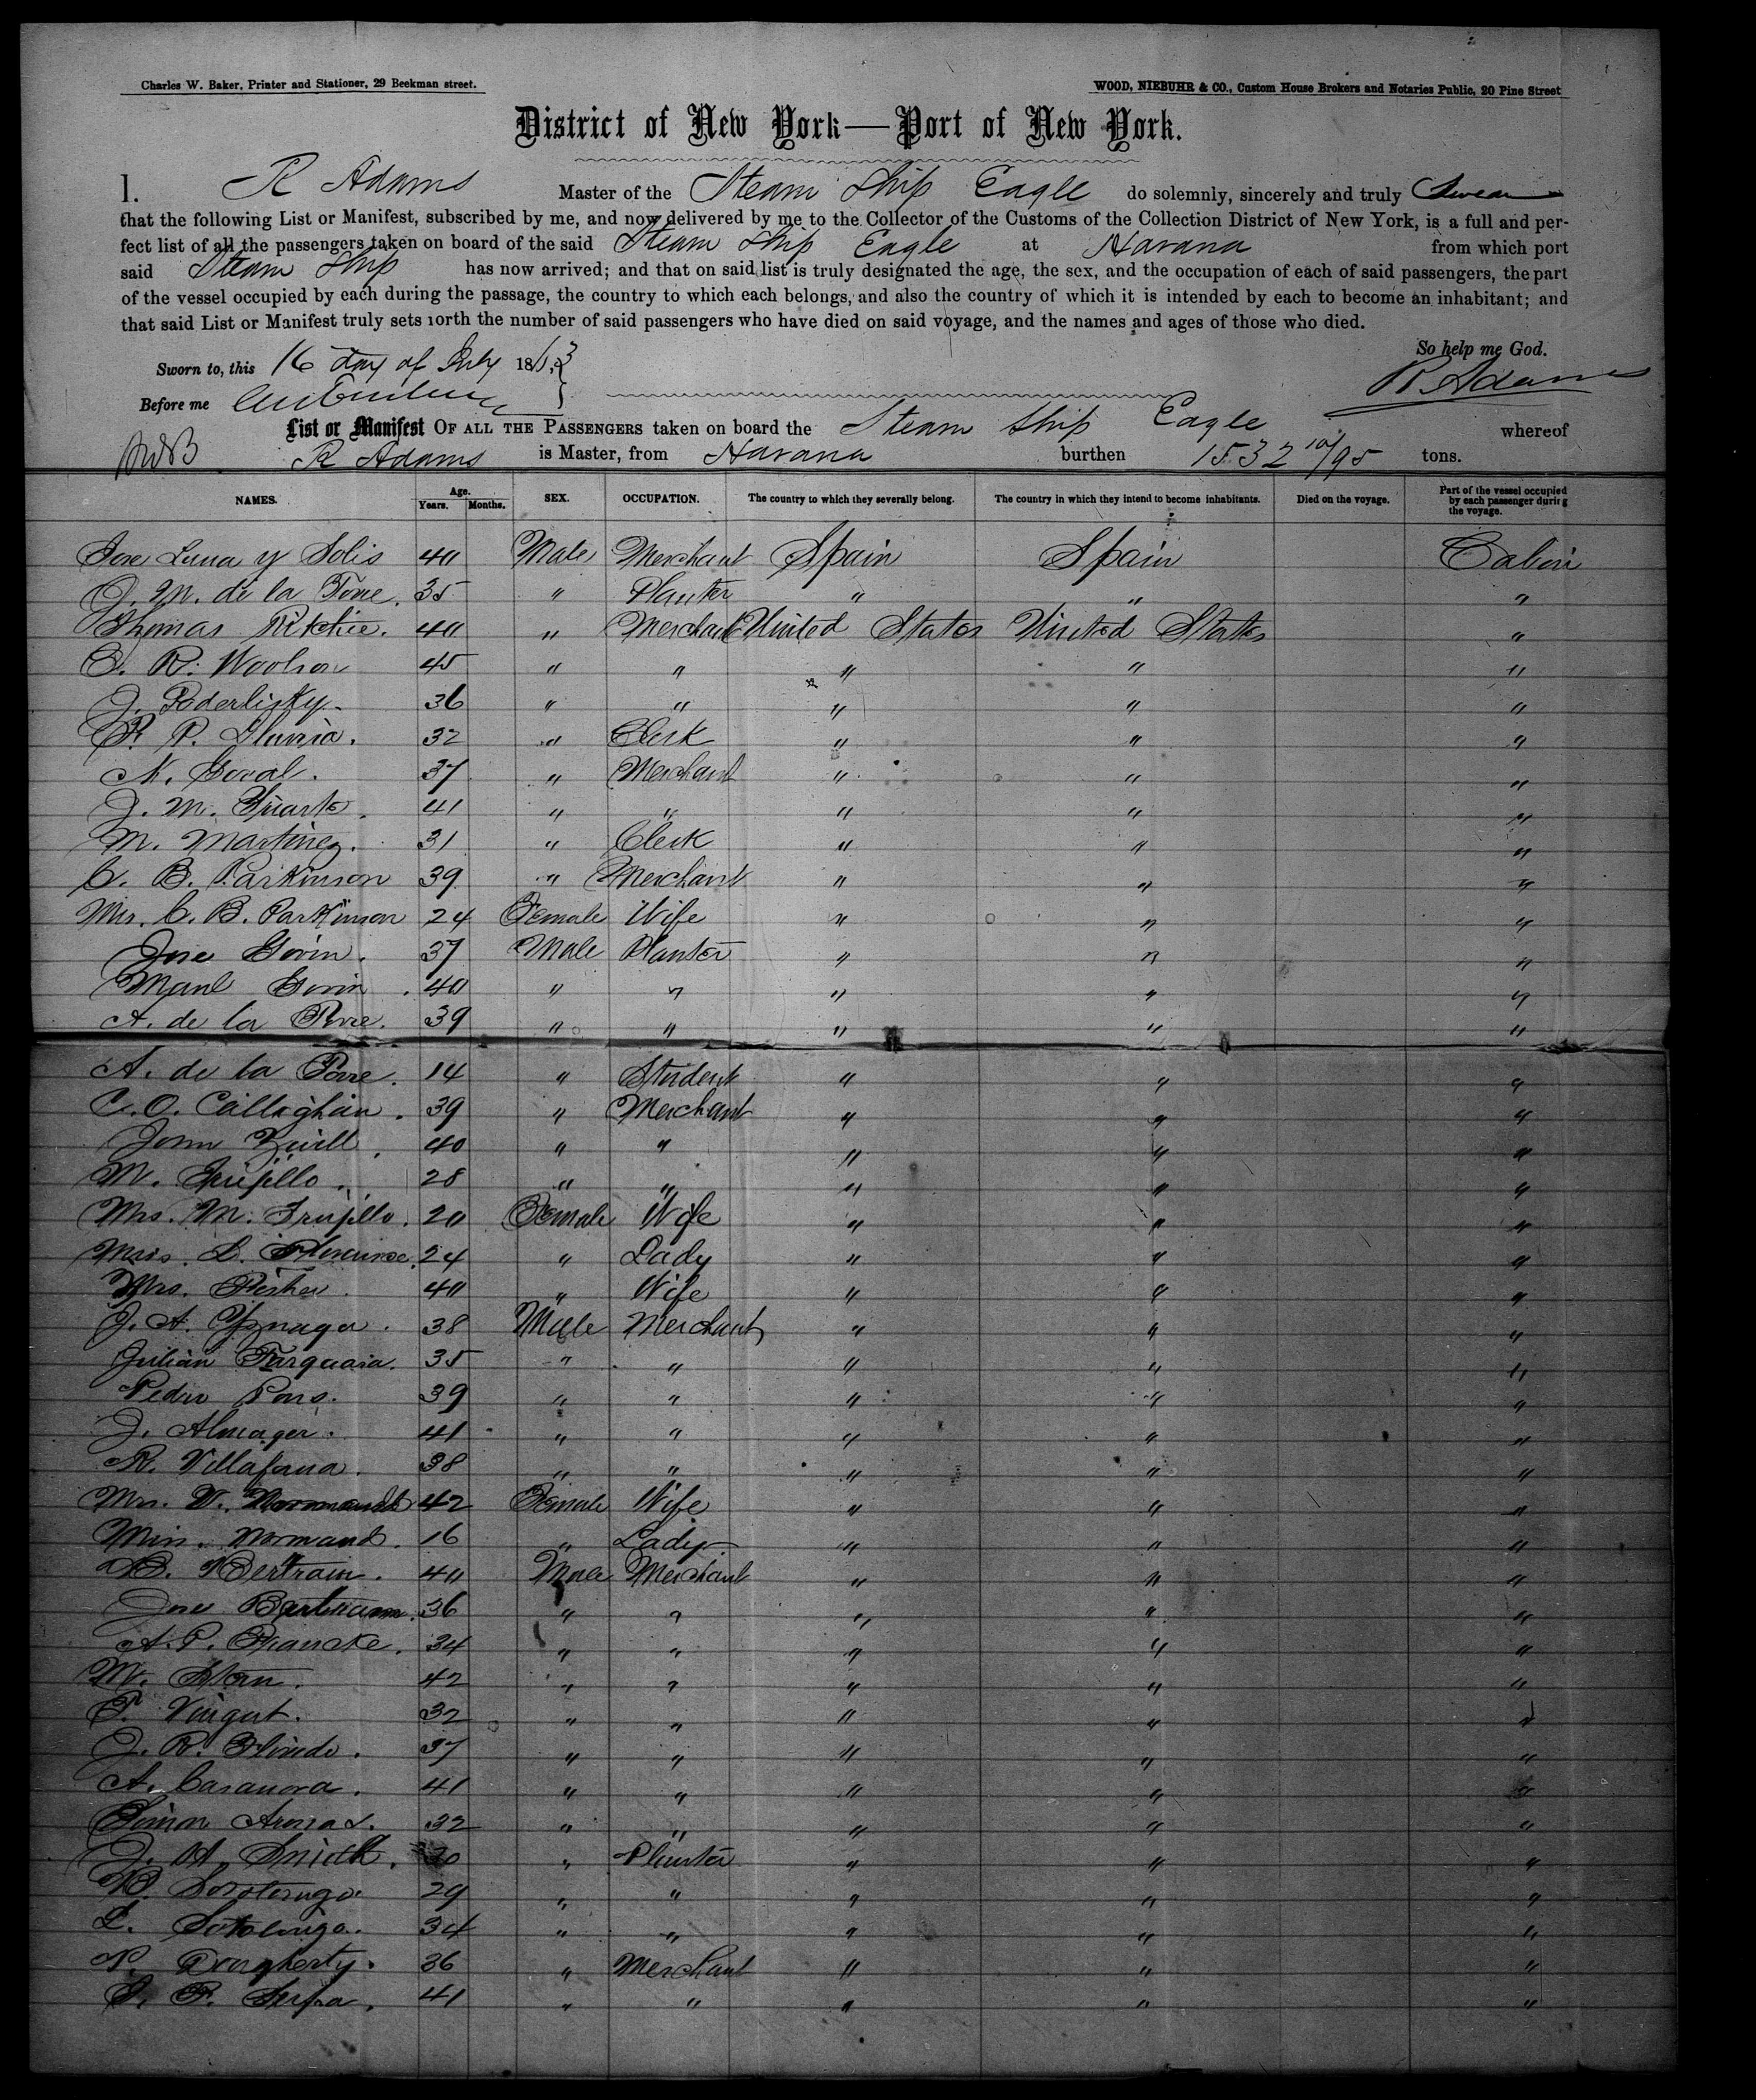 Charles W. Baker, Printer and Stationer, 29 Beekman street. WOOD, NIEBUHR & CO., Custom House Brokers and Notaries Public, 20 Pine Street
District of New York—Port of New York.
I. R Adams Master of the Steam Ship Eagle do solemnly, sincerely and truly Swear
that the following List or Manifest, subscribed by me, and now delivered by me to the Collector of the Customs of the Collection District of New York, is a full and per-
fect list of all the passengers taken on board of the said Steam Ship Eagle at Havana from which port
said Steam Ship has now arrived; and that on said list is truly designated the age, the sex, and the occupation of each of said passengers, the part
of the vessel occupied by each during the passage, the country to which each belongs, and also the country of which it is intended by each to become an inhabitant; and
that said List or Manifest truly sets forth the number of said passengers who have died on said voyage, and the names and ages of those who died.
So help me God.
Sworn to, this 16 day of July 18
R Adams
Before me
List or Manifest OF ALL THE PASSENGERS taken on board the Steam Ship Eagle whereof
R Adams is Master, from Havana burthen 1532 10/95 tons.
NAMES. Age. Years. Months. SEX. OCCUPATION. The country to which they severally belong. The country in which they intend to become inhabitants. Died on the voyage. Part of the vessel occupied by each passenger during the voyage.
Jose Luna y Solis 40 Male Merchant Spain Spain Cabin
J. M. de la Torre. 35 " Planter " " "
Thomas Ritchie. 40 " Merchant United States United States "
C. R. Woolson 45 " " " " "
J. Poderlisky. 36 " " " " "
P. 32 " Clerk " " "
N. 37 " Merchant " " "
J. M. 41 " " " " "
M. Martinez. 31 " Clerk " " "
C. B. Parkinson 39 " Merchant " " "
Mrs. C. B. Parkinson 24 Female Wife " " "
Jose Govin. 37 Male Planter " " "
Manl Govin. 40 " " " " "
A. de la 39 " " " " "
A. de la 14 " Student " " "
C. O. Callaghan. 39 " Merchant " " "
John 40 " " " " "
M. Trujillo. 28 " " " " "
Mrs. M. Trujillo. 20 Female Wife " " "
L. 24 " Lady " " "
Mrs. Fisher. 40 " Wife " " "
J. A. Yznaga. 38 Male Merchant " " "
Julian 35 " " " " "
Pedro Pons. 39 " " " " "
J. Almager. 41 " " " " "
R. Villafana. 38 " " " " "
Mrs. V. Normand 42 Female Wife " " "
Miss. Normand. 16 " Lady " " "
B. Bertram. 40 Male Merchant " " "
Jose Bertram. 36 " " " " "
A. P. Francke. 34 " " " " "
M. 42 " " " " "
P. Vingut. 32 " " " " "
J. R. 37 " " " " "
A. Casanova. 41 " " " " "
Simon 32 " " " " "
J. A. Smith. " Planter " " "
29 " " " " "
L. Sotolongo. 34 " " " " "
P. Dougherty. 36 " Merchant " " "
P. Serpa. 41 " " " " "